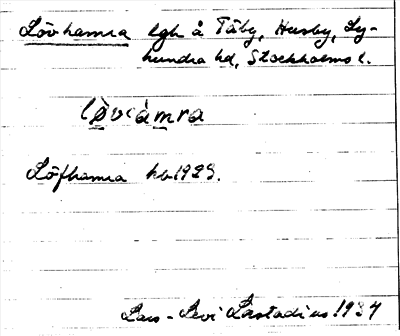 Lövhamra lgh å Täby, Husby, Ly-
hundra hd, Stockholms l.
Löfhamra kb 1929.
Lars-Levi Læstadius 1934